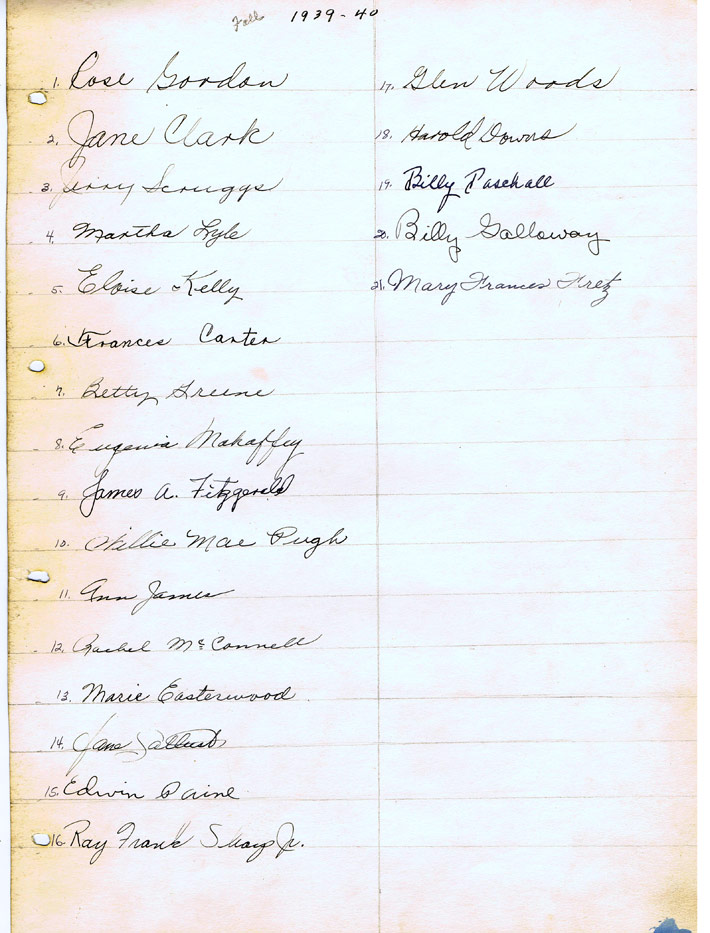 Fall 1939-40
1. Rose Gordon
2. Jane Clark
3. Jerry Scruggs
4. Martha Lyle
5. Eloise Kelly
6. Frances Carter
7. Betty Greene
8. Eugenia Mahaffey
9. James A. Fitzgerald
10. Willie Mae Pugh
11. Ann James
12. Rachel McConnell
13. Marie Easterwood
14. Jane
15. Edwin Paine
16. Ray Frank Jr.
17. Glen Woods
18. Harold Downs
19. Billy Paschall
20. Billy Galloway
21. Mary Frances Fretz